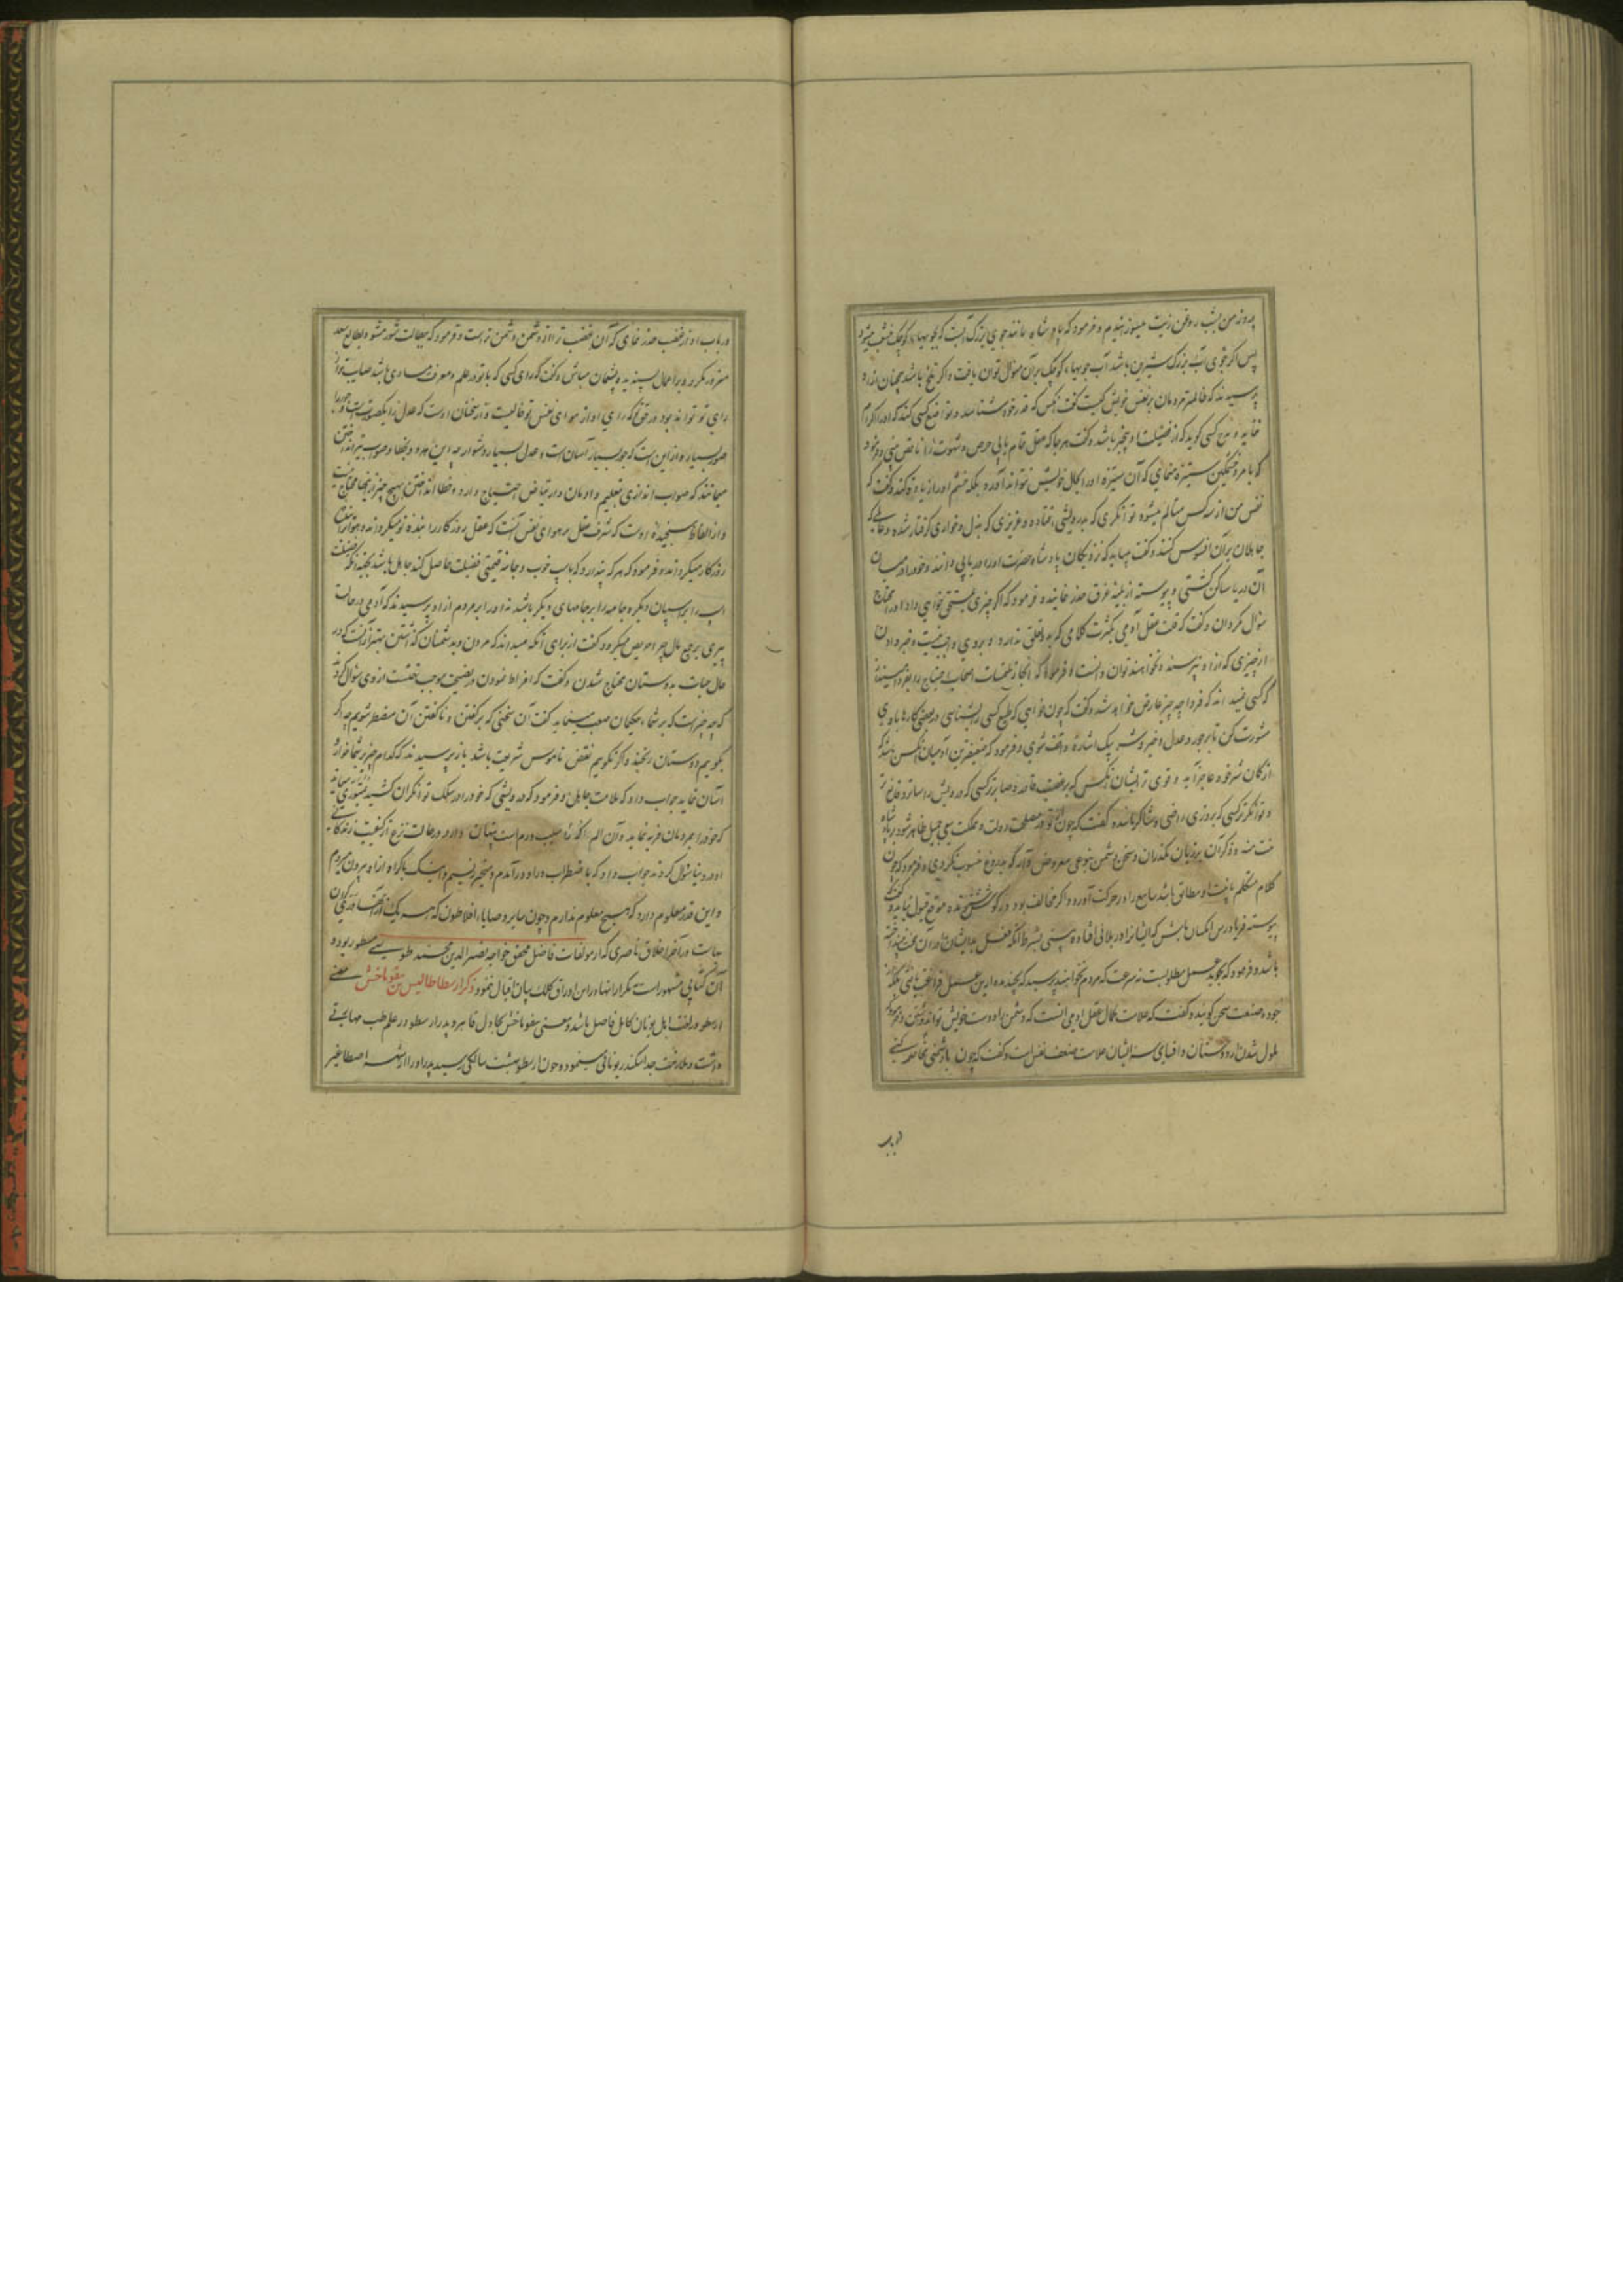 به روز من بشب روغن زیت میسوزانیدم و فرمود که پادشاه مانند جوی بزرگ آبست که بجویهای کوچک منشعب میشود
پس اگر جوی آب بزرگ شیرین باشد آب جویهای کوچک بر آن منوال توان یافت و اگر تلخ باشد همچنان ازو
پرسیدند که ظالمترین مردمان بر نفس خویش کیست گفت آنکس که قدر خود نشناسد و تواضع کسی کند که او را اکرام
نماید و مدح کسی گوید که از فضیلت او بیخبر باشد و گفت هر جا که عقل تمام یابی حرص و شهوت را ناقص بینی و فرمود
که با مرد خشمگین ستیزه منمای که آن ستیزه او را بحال خویش نتواند آورد بلکه خشم او را زیاده کند و گفت که
نفس من از سه کس متالم میشود توانگری که بدرویشی افتاده و عزیزی که بذل و خواری گرفتار شده و عالمی که
جاهلان بر آن افسوس کنند و گفت میباید که نزدیکان پادشاه حضرت او را دریایی دانند و خود را در میان
آن دریا ساکن کشتی و پیوسته از بیم غرق حذر نمایند و فرمود که اگر چیزی بمستحق خواهی داد او را محتاج
سؤال مگردان و گفت که قلت عقل آدمی بکثرت کلامی که بدو تعلق ندارد
از چیزی که از او نپرسند و نخواهند توان دانست و فرمود که انجاز ملتمسات اصحاب احتیاج را بفردا میفکن
که کسی نمیداند که فردا چه چیز عارض خواهد شد و گفت که چون خواهی که طبع کسی را بشناسی در بعضی کارها با وی
مشورت کن تا بر جور و عدل و خیر و شر بیک اشاره واقف شوی و فرمود که ضعیفترین آدمیان آنکس باشد که
از کتمان سر خود عاجز آید و قوی ترین ایشان آنکس که بر غضب قادر و صابرتر کسی که درویش را ساتر و قانع تر
و توانگرتر کسی که بروزی راضی و شاکر باشد و گفت که چون از تو در مصلحت دولت و مملکت سعی جمیل ظاهر شود بر پادشاه
منت منه و ذکر آن بر زبان مگذران و سخن دشمن بنوعی معروض دار که بدروغ منسوب نگردی و فرمود که چون
کلام متکلم با نیت او مطابق باشد سامع را در حرکت آورد و اگر مخالف بود در گوش شنونده موقع قبول نیابد و گفت
پیوسته فریادرس آنکسان باش که ایشانرا در بلائی افتاده بینی بشرط آنکه فعل بد ایشان را در آن محنت نینداخته
باشد و فرمود که تجوید عمل مطلوبست نه سرعت که مردم نخواهند پرسید که بچند مدت ازین عمل فراغت یافتی بلکه از
جودت صنعت سخن گویند و گفت که علامت کمال عقل آدمی آنست که دشمن را دوست خویش تواند گردانید و فرمود که
ملول شدن از دوستان و افشای سر ایشان علامت ضعف نفس است و گفت که چون با دشمنی مخاصمه کنی
در باب
در باب او از غضب حذر نمای که آن غضب ترا از دشمن دشمن تر است و فرمود که ببطالت مشهور مشو و بطالع سعد
مغرور مگرد و بر اعمال پسندیده پشیمان مباش و گفت که رای کسی که با تو در علم و معرفت مساوی باشد صایب تر از
رای تو تواند بود در حق تو که رای او از هوای نفس تو خالیست و از سخنان اوست که عدل را یک صورتست و جور را
صور بسیار و از این است که جور بسیار آسان است و عدل بسیار دشوار چه این هر دو بخطا و صواب تیر انداختن
میمانند که صواب اندازی بتعلیم و ادمان و ارتیاض احتیاج دارد و خطا انداختن بهیچ چیز ازینها محتاج نیست
و از الفاظ سنجیده اوست که شرف عقل بر هوای نفس آنست که عقل روزگار را بنده تو میگرداند و هوا ترا بنده
روزگار میگرداند و فرمود که هر که پندارد که باسب خوب و جامه قیمتی فضیلت حاصل کند جاهل باشد بجهت آنکه فضیلت
اسب را بر اسبان دیگر و جامه را بر جامهای دیگر باشد نه او را بر مردم از او پرسیدند که آدمی در حالت
پیری بر جمع مال چرا حریص میگردد گفت از برای آنکه میداند که مردن و بدشمنان گذاشتن بهتر از آنست که در
حال حیات بدوستان محتاج شدن و گفت که افراط نمودن در نصیحت موجب تهمتست از وی سؤال کردند
که چه چیز است که بر شما حکیمان صعب مینماید گفت آن سخنی که بر گفتن و ناگفتن آن مضطر شویم چه اگر
بگوییم دوستان رنجند و اگر نگوییم نقض ناموس شریعت باشد باز پرسیدند که کدام چیز بر شما خوار و
آسان نماید جواب داد که ملامت جاهلان و فرمود که درویشی که خود را در سلک توانگران کشد بمتورمی ماند
که خود را بمردمان فربه نماید و آن الم را که از آسیب ورم است پنهان دارد و در حالت نزع از کیفیت زندگانی
او در دنیا سؤال کردند جواب داد که باضطراب در او درآمدم و بتحیر زیستم و اینک باکراه از او بیرون میروم
و این قدر معلوم دارم که هیچ معلوم ندارم و چون سایر وصایای افلاطون که هر یک از آنها در یگانه
در آخر اخلاق ناصری که از مولفات فاضل محقق خواجه نصیرالدین محمد طوسی مسطور بوده و
آن کتابی مشهور است بتکرار آنها در این اوراق کلک بیان اقبال ننمود ذکر ارسطاطالیس بن نیقوماخش معنی
ارسطو در لغت اهل یونان کامل فاضل باشد و معنی نیقوماخش مجادل قاهر و پدر ارسطو در علم طب مهارتی
داشت و ملازمت جد اسکندر یونانی مینمود و چون ارسطو بهشت سالگی رسید پدر او را از شهر اصطاغیر